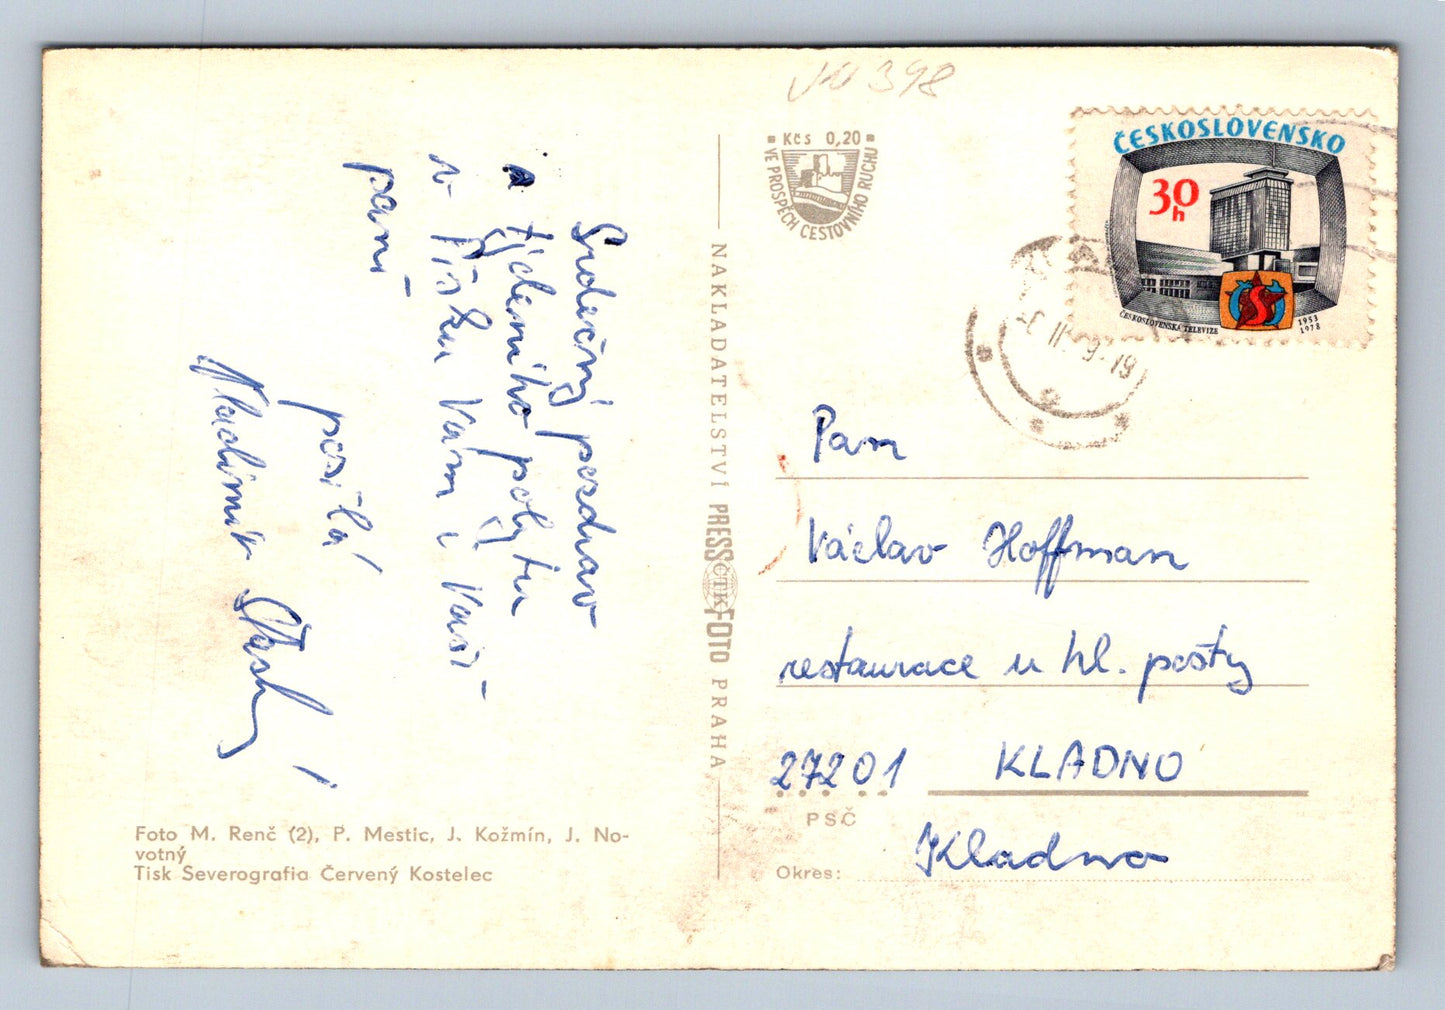 Srdečný pozdrav
z týdenního pobytu
v Písku Vám i Vaší
paní
posílá
Vladimír
Foto M. Renč (2), P. Mestic, J. Kožmín, J. No-
votný
Tisk Severografia Červený Kostelec
NAKLADATELSTVÍ PRESSFOTO PRAHA
ČTK
398
Kčs 0,20
VE PROSPĚCH CESTOVNÍHO RUCHU
ČESKOSLOVENSKO
30h
ČESKOSLOVENSKÁ TELEVIZE
1953
1978
Pan
Václav Hoffman
restaurace u hl. pošty
27201 KLADNO
PSČ
Okres: Kladno